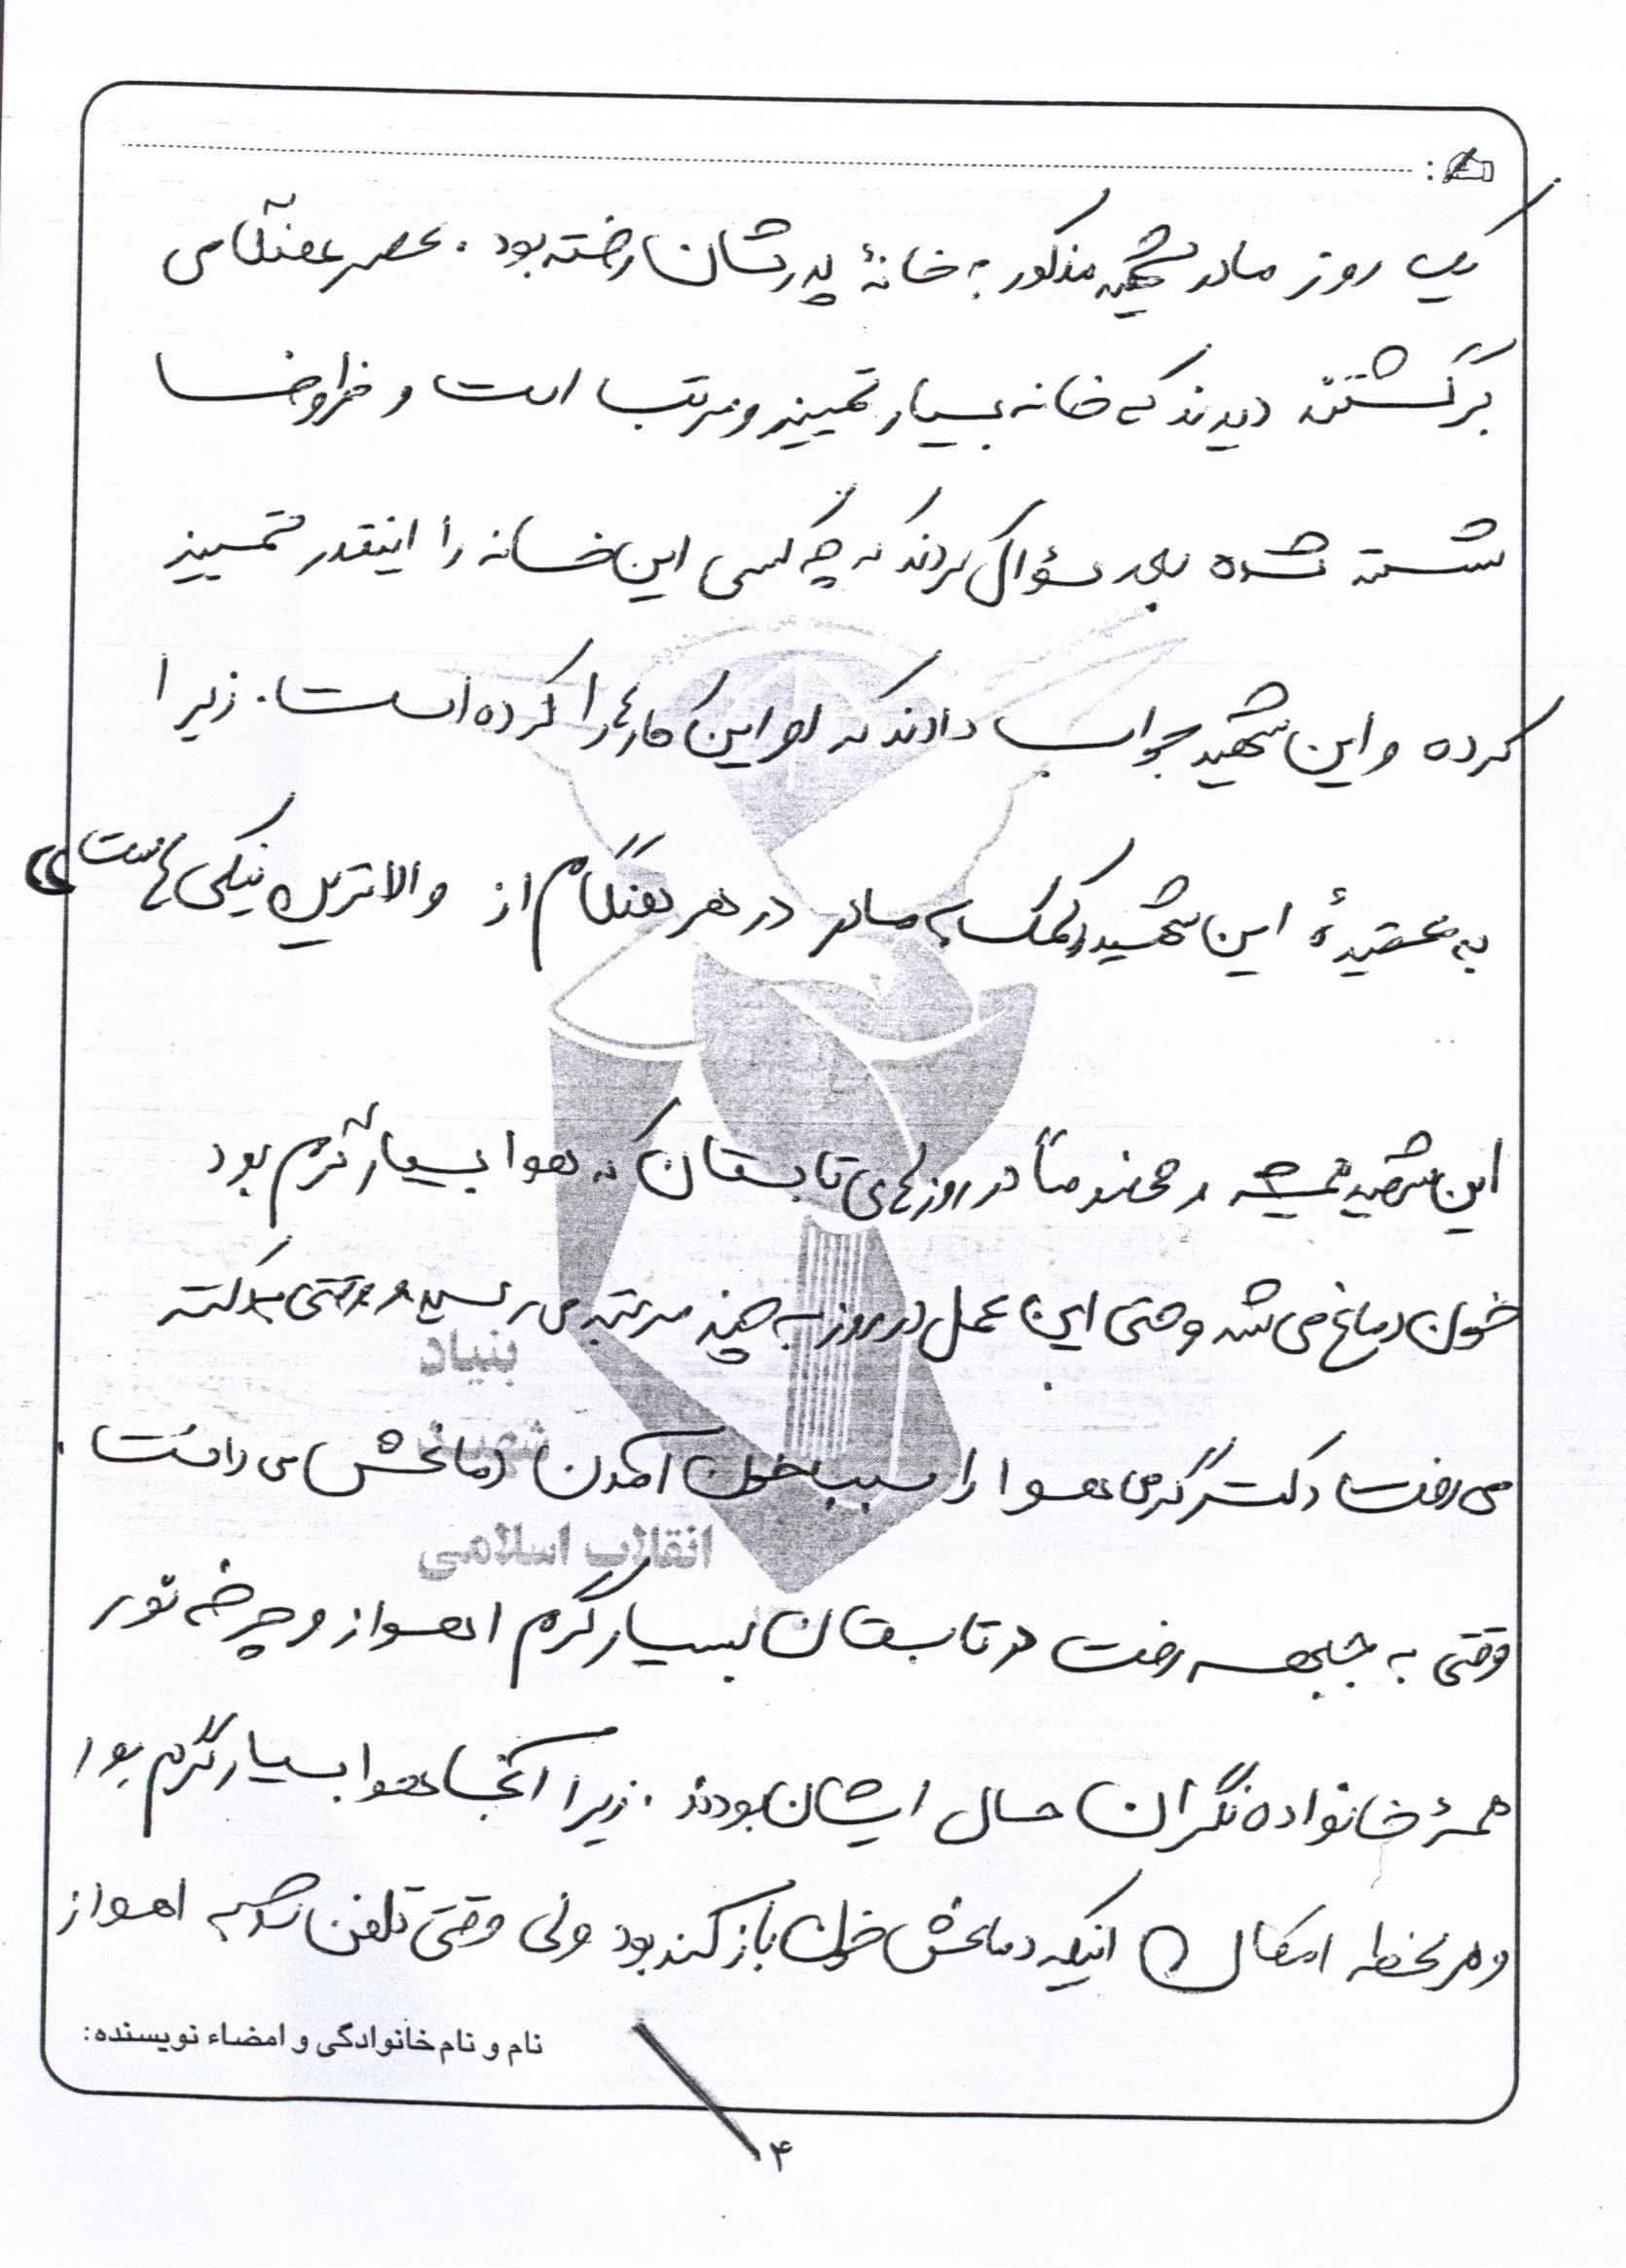 یک روز مادر شهید مذکور به خانهٔ پدرشان رفته بود. عصر هنگامی
برگشتند دیدند که خانه بسیار تمییز و مرتب است و ظروفها
شسته شده بعد سؤال کردند که چه کسی این خانه را اینقدر تمییز
کرده و این شهید جواب دادند که او این کارها را کرده است. زیرا
به عقیدهٔ این شهید کمک به مادر در هر هنگام از والاترین نیکی هاست»
این شهید همیشه مخصوصاً در روزهای تابستان که هوا بسیار گرم بود
خون دماغ می شد و حتی این عمل در روز به چند مرتبه می رسید و وقتی به دکتر
می رفت دکتر گرمی هوا را سبب خون آمدن دماغش می دانست.
وقتی به جبهه رفت در تابستان بسیار گرم اهواز و چرخه تور
همهٔ خانواده نگران حال ایشان بودند. زیرا آنجا هوا بسیار گرم بود
و هر لحظه امکان اینکه دماغش خون باز کند بود ولی وقتی تلفن شد به اهواز
بنیاد
شهید
انقلاب اسلامی
نام و نام خانوادگی و امضاء نویسنده:
۴